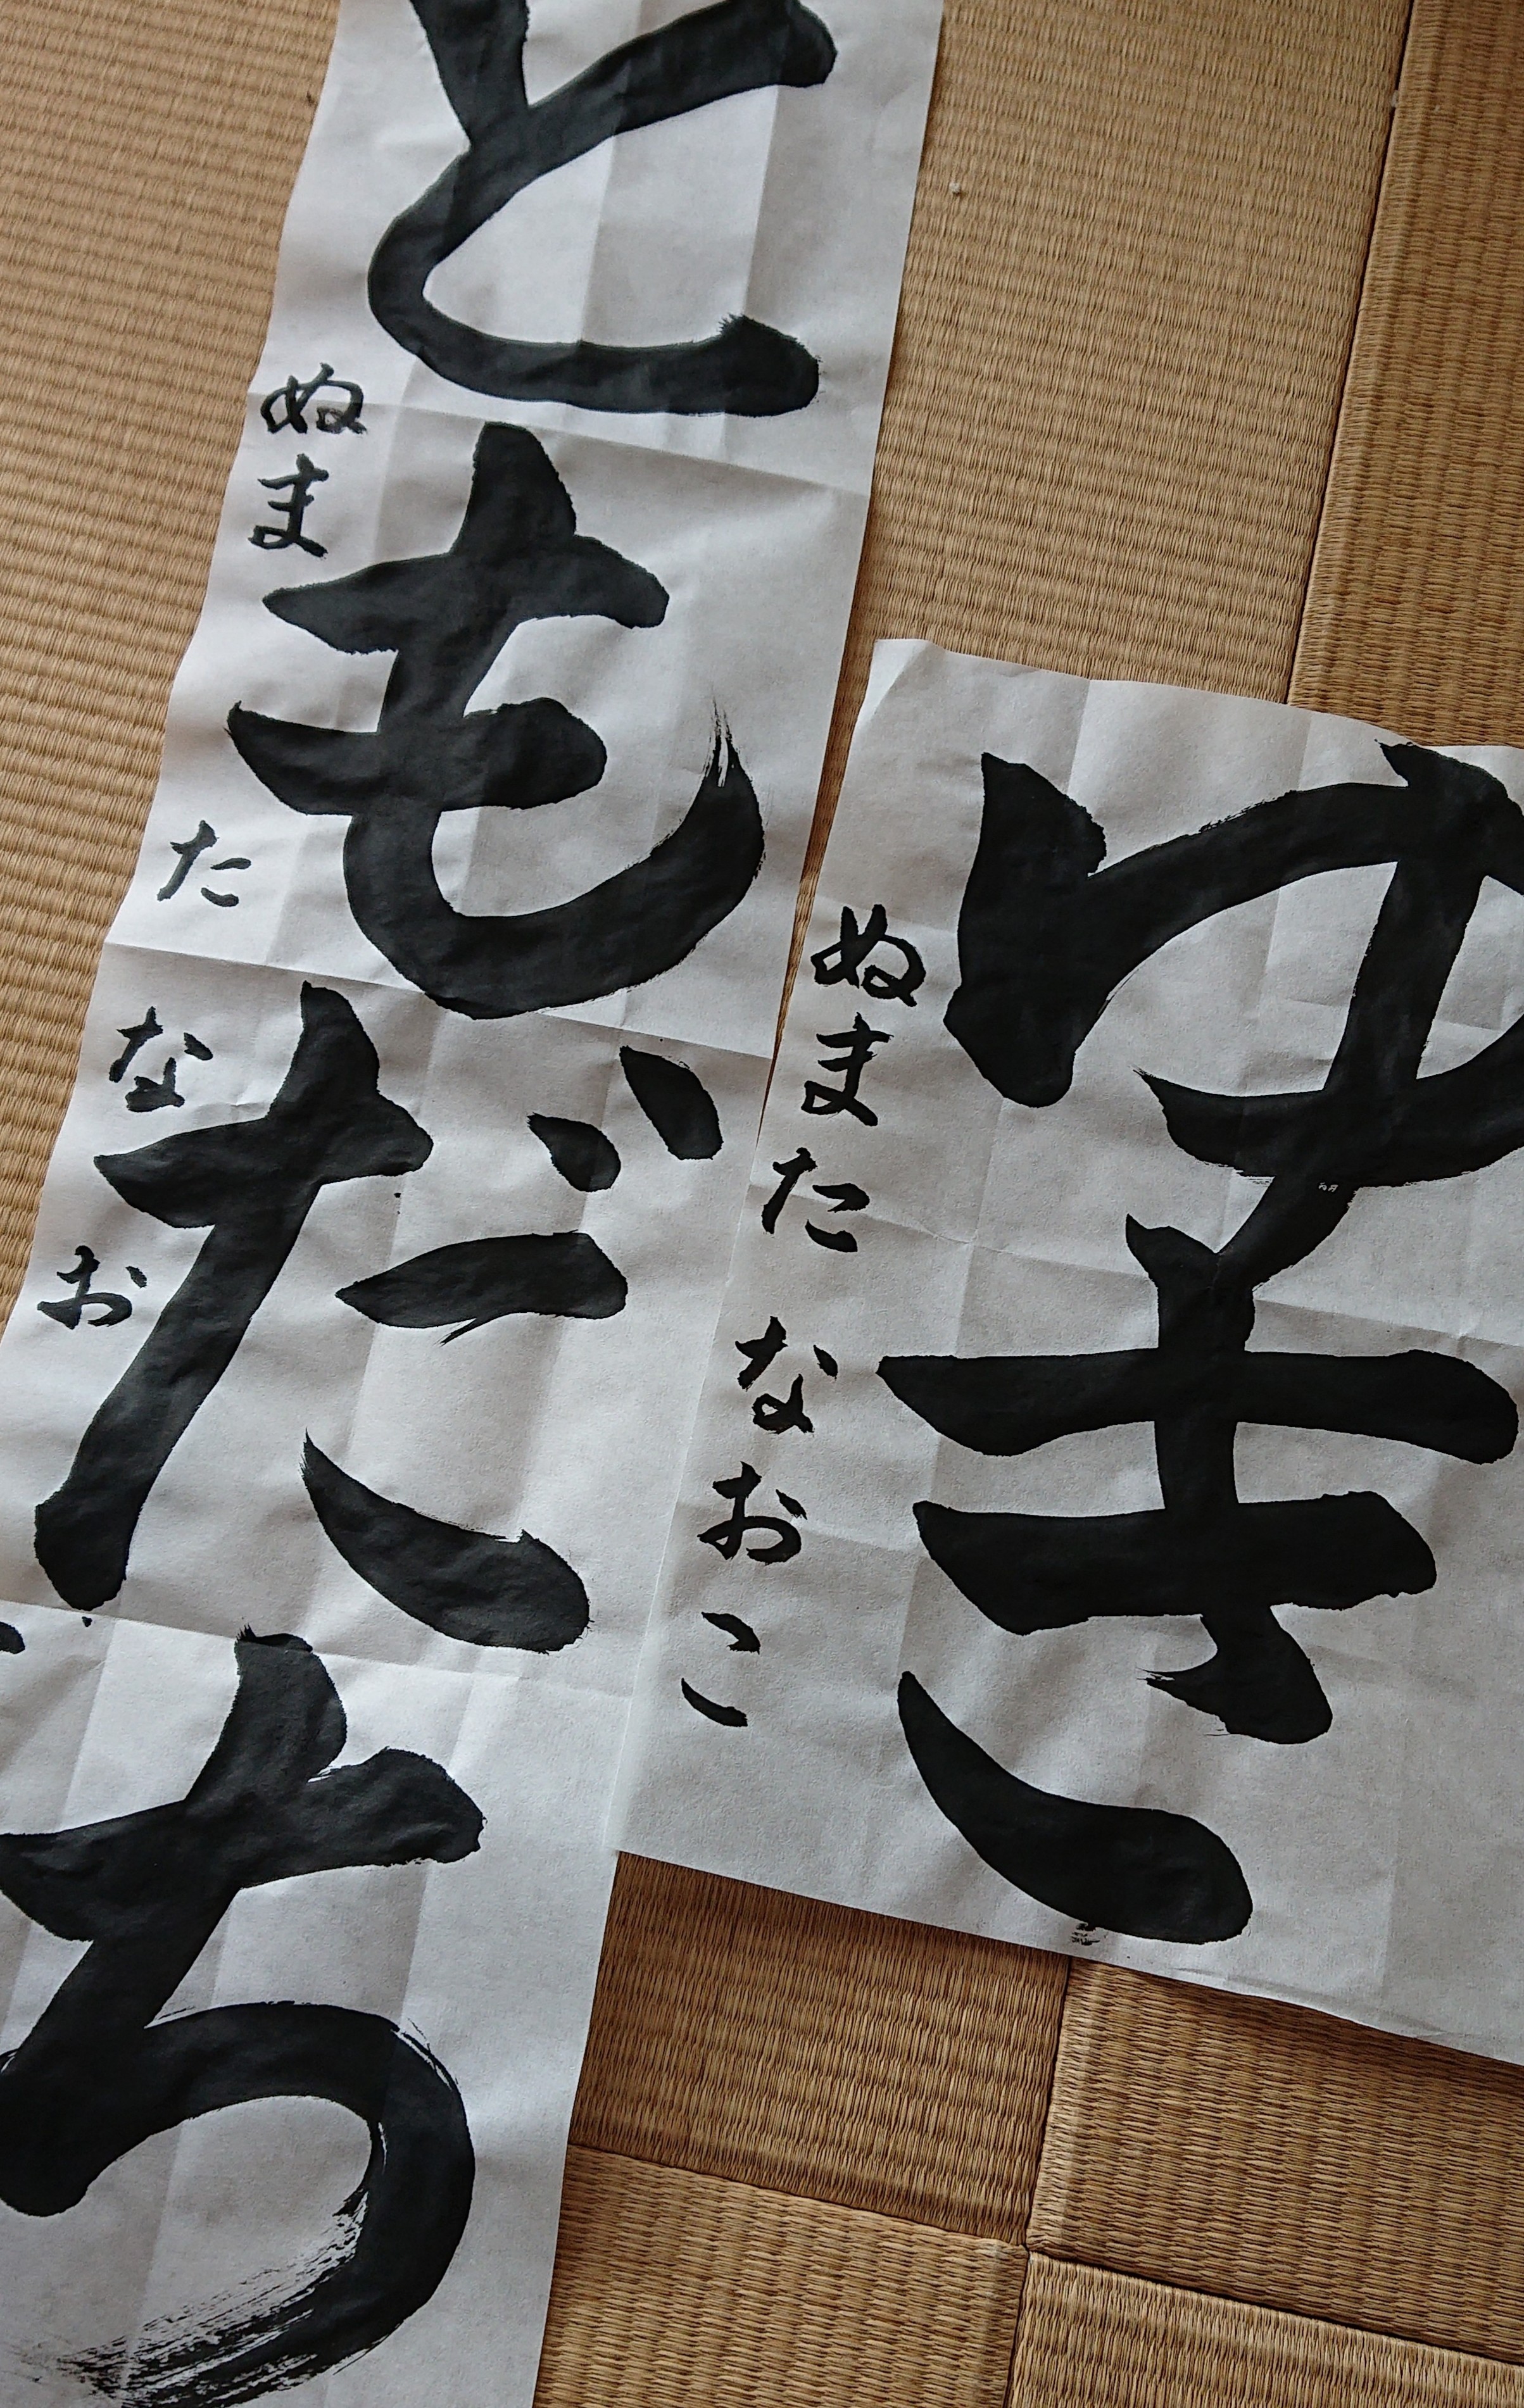 ゆき
ぬまた なおこ
ともだち
ぬまた なお